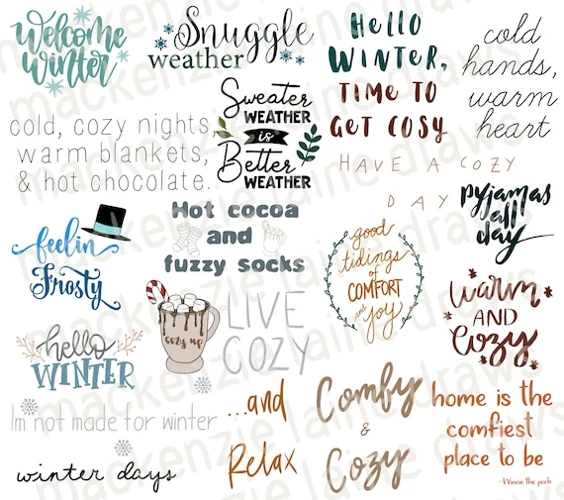 Welcome
winter
Snuggle
weather
Hello
WINTER,
TIME TO
GET COSY
cold
hands,
warm
heart
cold, cozy nights,
warm blankets,
& hot chocolate.
Sweater
WEATHER
is
Better
WEATHER
HAVE A COZY
DAY
pyjamas
all
day
feelin
Frosty
Hot cocoa
and
fuzzy socks
good
tidings
of
COMFORT
and
JOY
warm
AND
Cozy
hello
WINTER
cozy up
LIVE
COZY
Im not made for winter
...and
Relax
Comfy
&
Cozy
home is the
comfiest
place to be
- Winnie the pooh
winter days
mackenzie laine draws